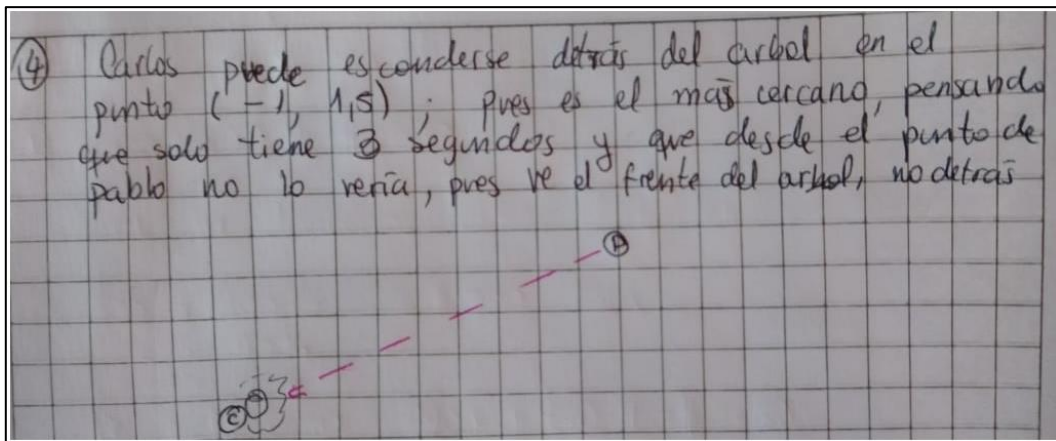 ④ Carlos puede esconderse detrás del arbol en el
punto (-1, 1,5); pues es el más cercano, pensando
que solo tiene 3 segundos y que desde el punto de
pablo no lo vería, pues ve el frente del arbol, no detrás
P
C